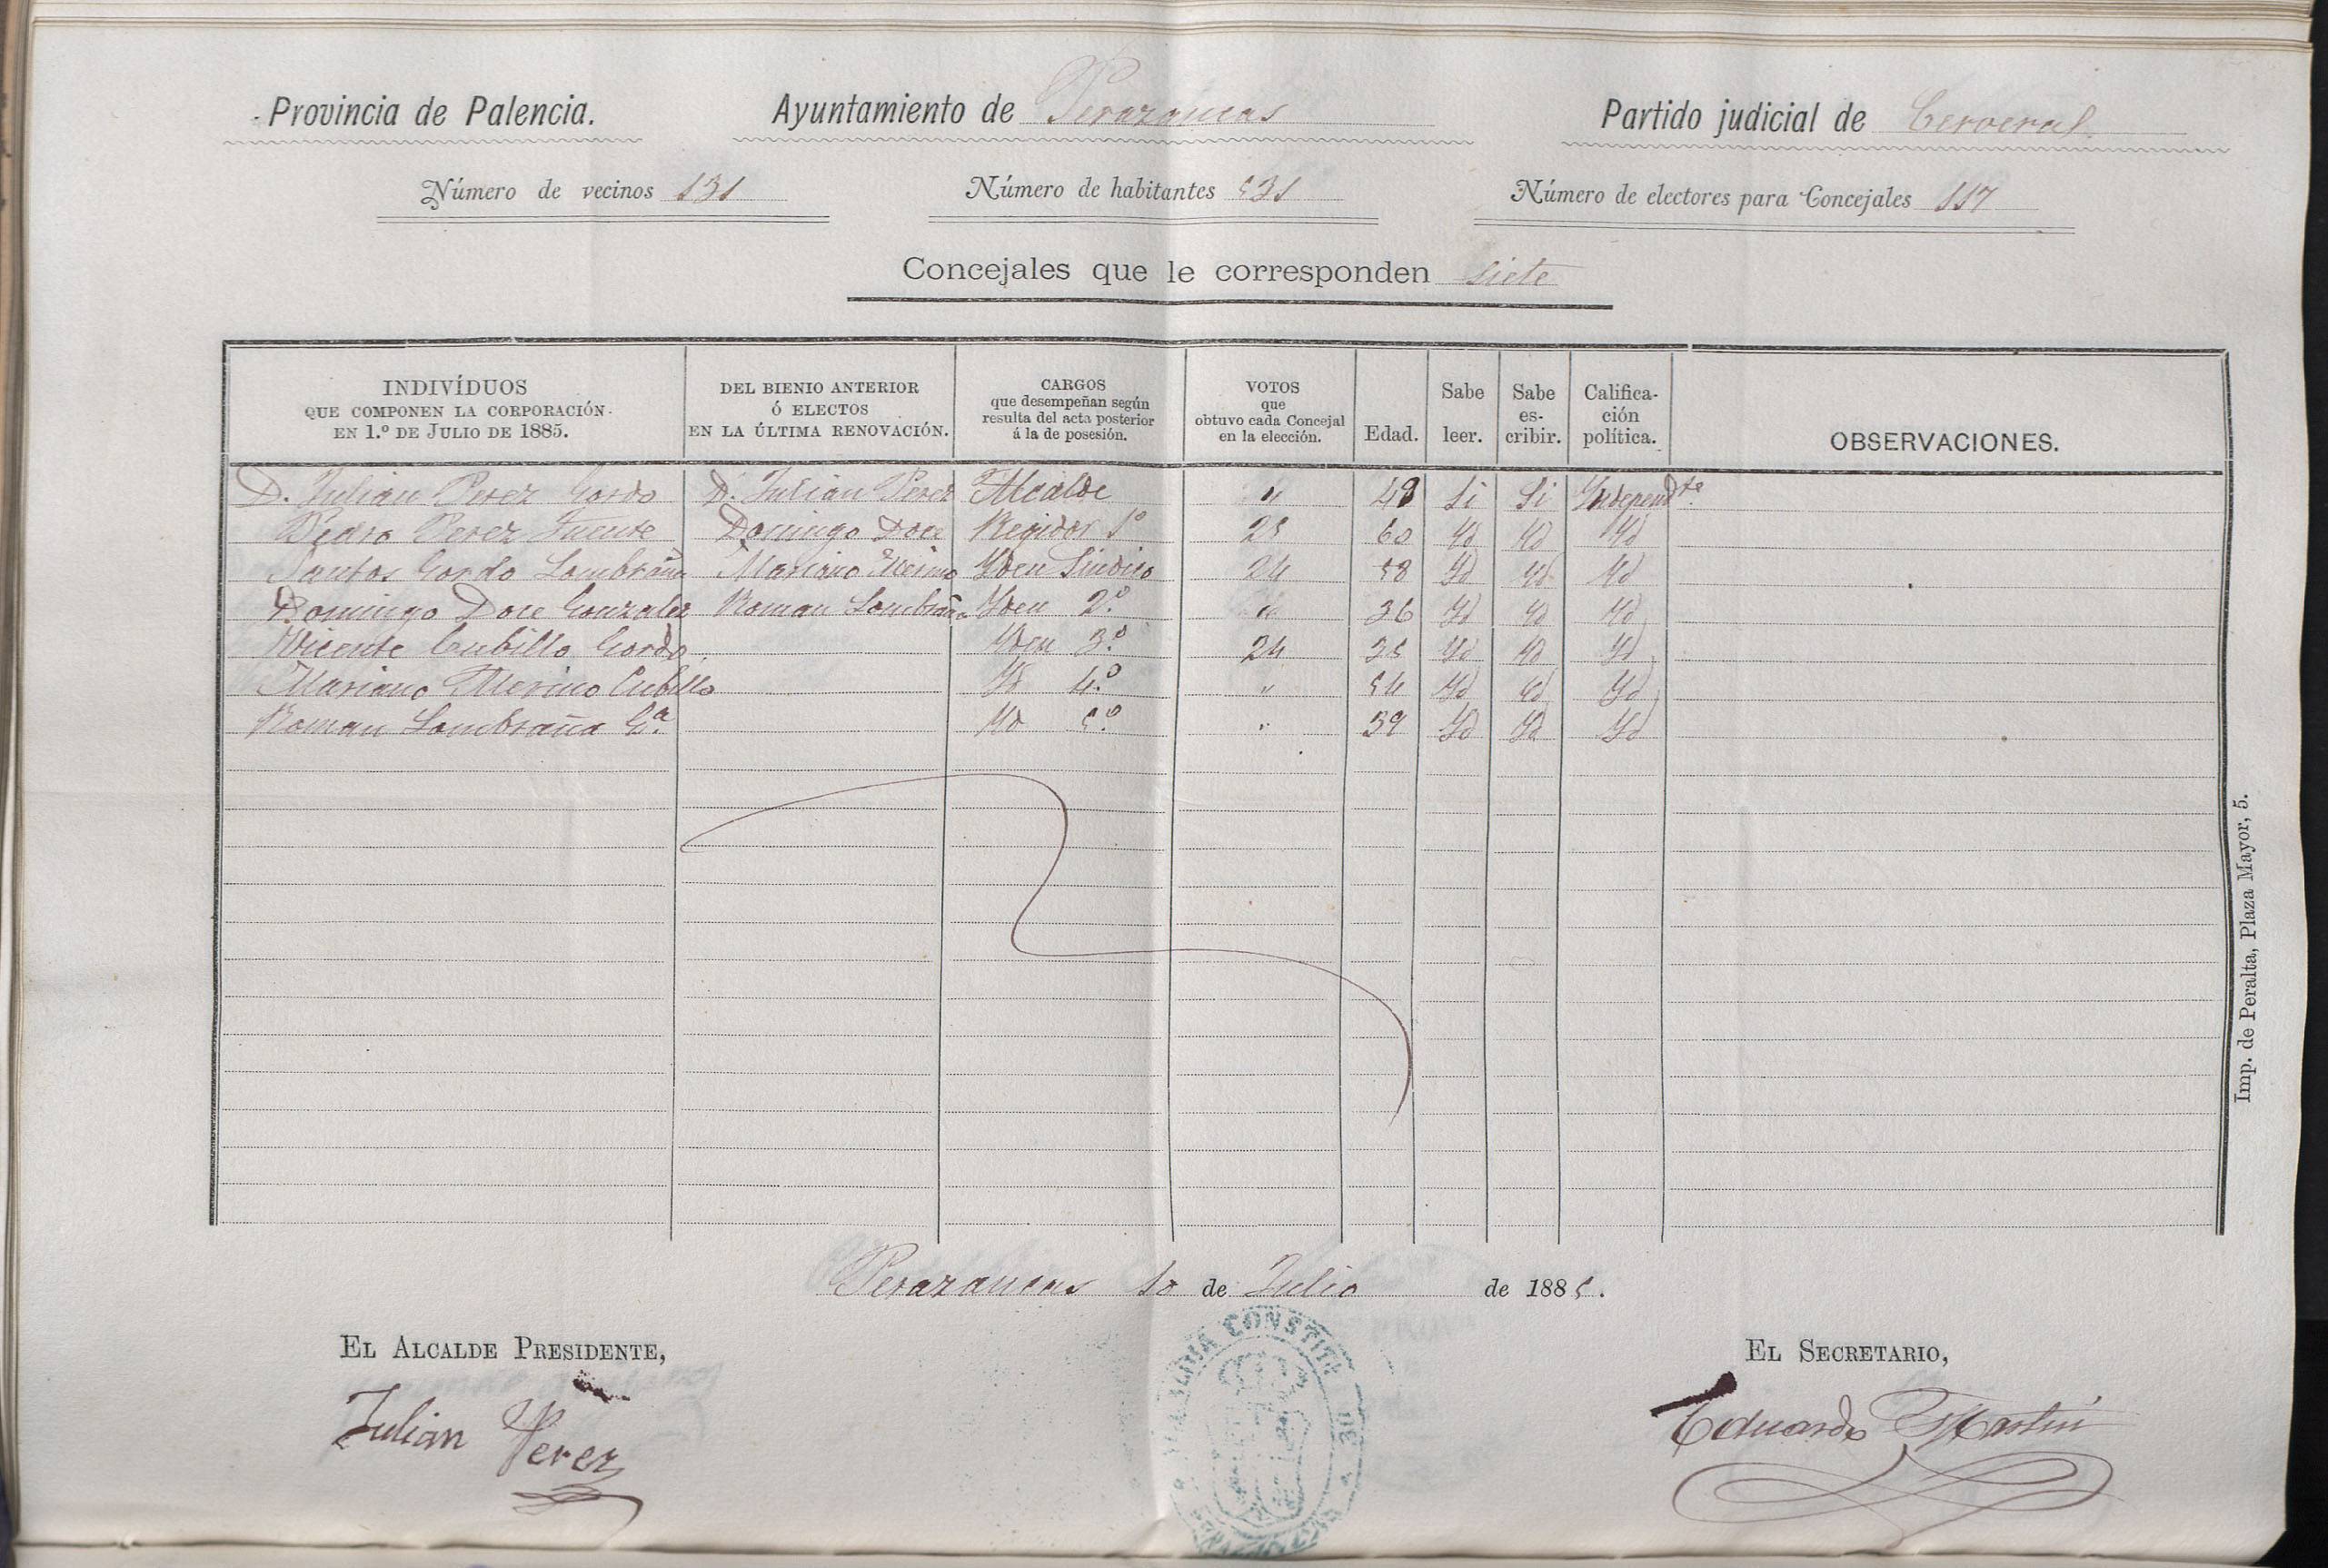 Provincia de Palencia. Ayuntamiento de Perazancas Partido judicial de Cervera
Número de vecinos 131 Número de habitantes 531 Número de electores para Concejales 117
Concejales que le corresponden siete
INDIVÍDUOS QUE COMPONEN LA CORPORACIÓN EN 1.º DE JULIO DE 1885. DEL BIENIO ANTERIOR Ó ELECTOS EN LA ÚLTIMA RENOVACIÓN. CARGOS que desempeñan según resulta del acta posterior á la de posesión. VOTOS que obtuvo cada Concejal en la elección. Edad. Sabe leer. Sabe es-cribir. Califica-ción política. OBSERVACIONES.
D. Julian Perez Gordo D. Julian Perez Alcalde " 49 Si Si Independte.
Pedro Perez Fuente Domingo Doce Regidor 1º 25 60 Yd Yd Yd
Santos Gordo Lombraña Mariano Merino Yden Sindico 24 58 Yd Yd Yd
Domingo Doce Gonzalez Roman Lombraña Yden 2.º " 36 Yd Yd Yd
Vicente Cubillo Gordo. Yden 3.º 24 35 Yd Yd Yd
Mariano Merino Cubillo Yd 4.º " 54 Yd Yd Yd
Roman Lombraña Ga. Yd 5.º " 39 Yd Yd Yd
Perazancas 10 de Julio de 1885.
EL ALCALDE PRESIDENTE, EL SECRETARIO,
Julian Perez Eduardo Martin
Imp. de Peralta, Plaza Mayor, 5.